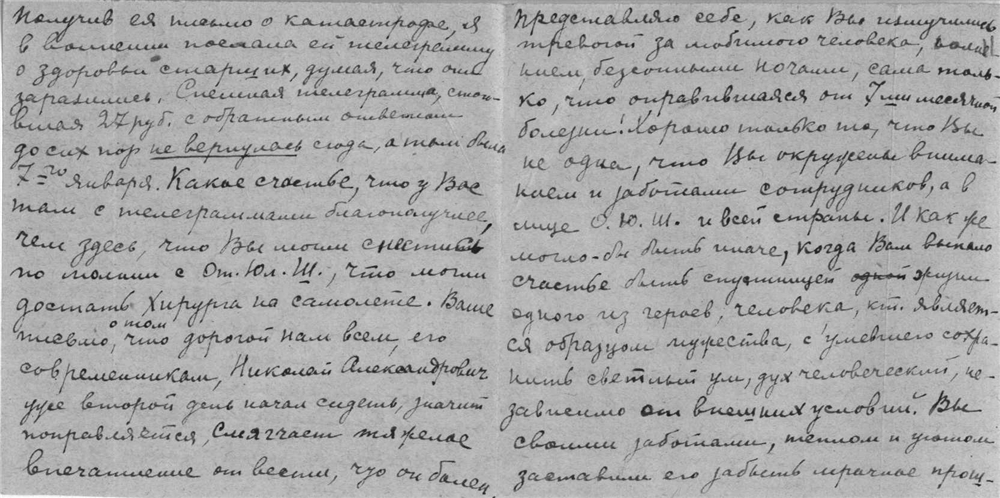 Получив ея письмо о катастрофе, я
в волнении послала ей телеграмму
о здоровьи старших, думая, что они
заразились. Спешная телеграмма, стоив-
шая 27 руб. с обратным ответом
до сих пор не вернулась сюда, а там была
7-го января. Какое счастье, что у Вас
там с телеграммами благополучнее,
чем здесь, что Вы могли снестись
по молнии с От. Юл. Ш., что могли
достать хирурга на самолете. Ваше
письмо, о том, что дорогой нам всем, его
современникам, Николай Александрович
уже второй день начал сидеть, значит
поправляется, смягчает тяжелое
впечатление от вести, что он болен.
Представляю себе, как Вы измучились
тревогой за любимого человека, волне-
нием, безсонными ночами, сама толь-
ко, что оправившаяся от 7ми месячной
болезни! Хорошо только то, что Вы
не одна, что Вы окружены внима-
нием и заботами сотрудников, а в
лице О. Ю. Ш. и всей страны. И как же
могло-бы быть иначе, когда Вам выпало
счастье быть спутницей одной жизни
одного из героев, человека, кт. являет-
ся образцом мужества, с умевшего сохра-
нить светлый ум, дух человеческий, не-
зависимо от внешних условий. Вы
своими заботами, теплом и уютом
заставили его забыть мрачное прош-